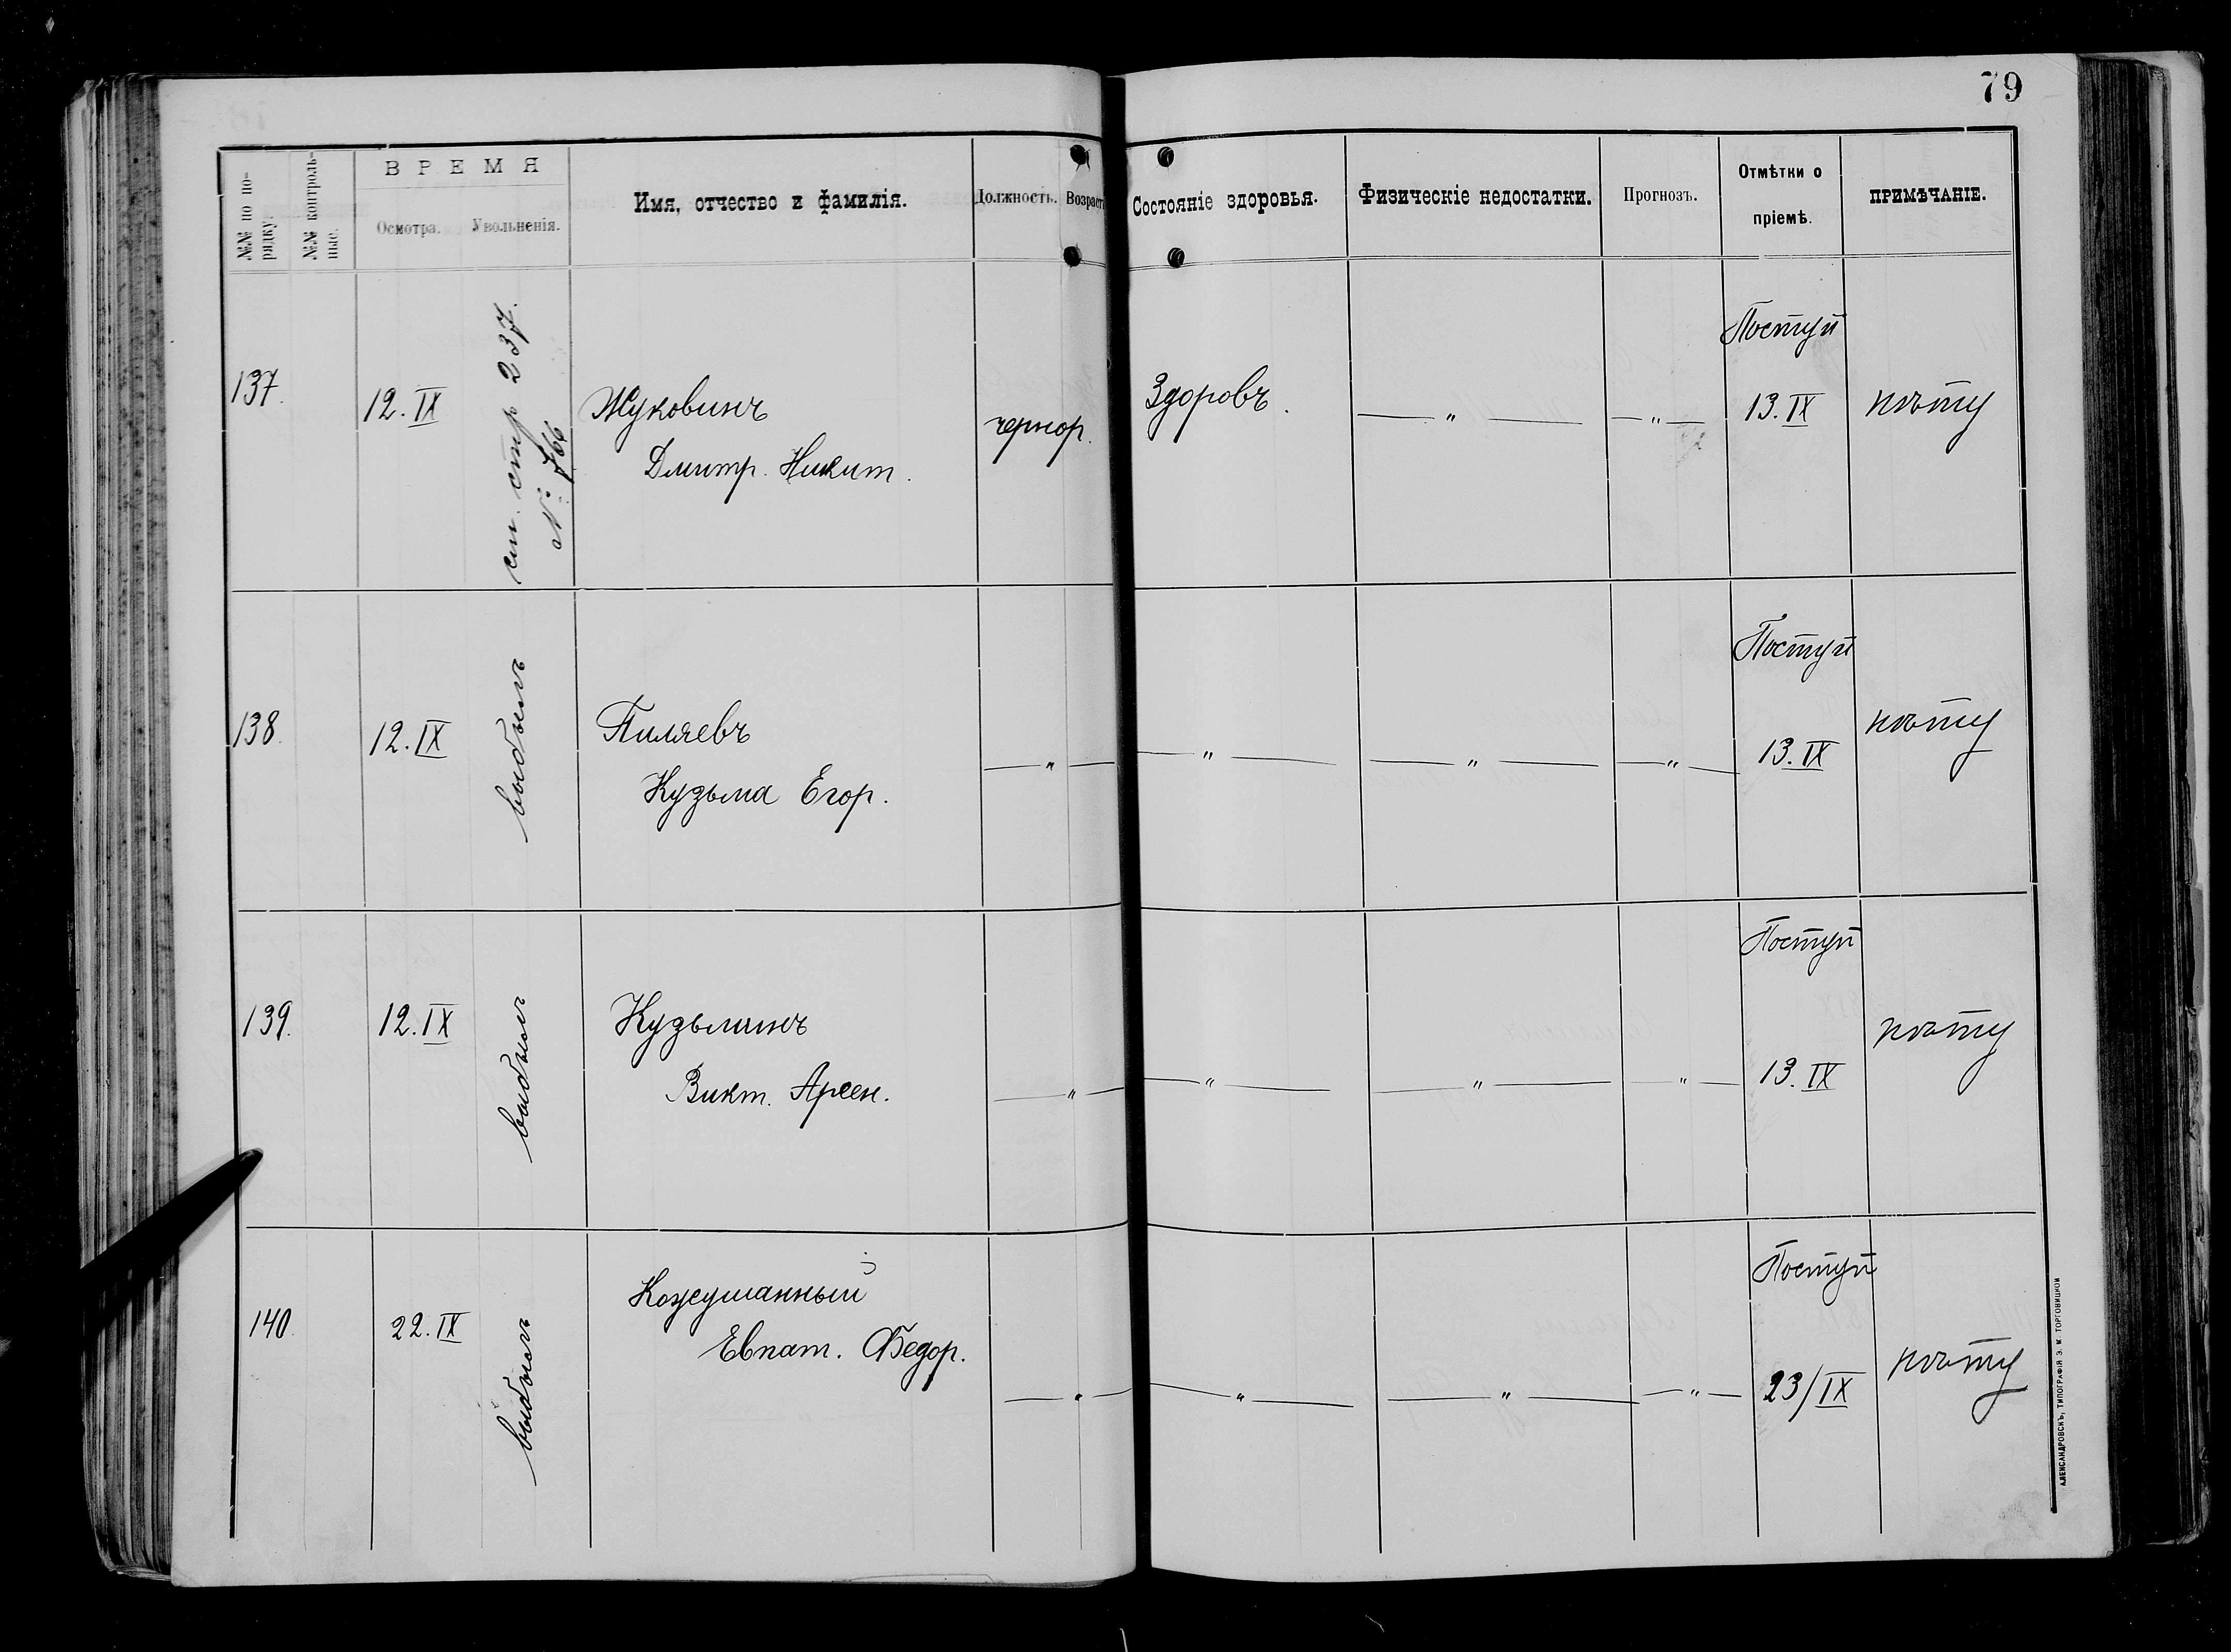 79
№№ по по-
рядку.
№№ контроль-
ные.
ВРЕМЯ
Осмотра.
Увольненія.
Имя, отчество и фамилія.
Должность.
Возрастъ
Состояніе здоровья.
Физическіе недостатки.
Прогнозъ.
Отмѣтки о
пріемѣ.
ПРИМѢЧАНІЕ.
137.
12. IX
см. стр 237.
№ 766
Жуковинъ
Дмитр. Никит.
чернор.
Здоровъ.
— " —
— " —
Поступ
13. IX
138.
12. IX
выбылъ
Пиляевъ
Кузьма Егор.
— " —
— " —
— " —
— " —
Поступ
13. IX
139.
12. IX
выбыл
Кузьминъ
Викт. Арсен.
— " —
— " —
— " —
— " —
Поступ
13. IX
140.
22. IX
выбылъ
Кожушанный
Евпат. Федор.
— " —
— " —
— " —
— " —
Поступ
23/IX
АЛЕКСАНДРОВСКЪ, ТИПОГРАФІЯ Э. М. ТОРГОВИЦКОЙ